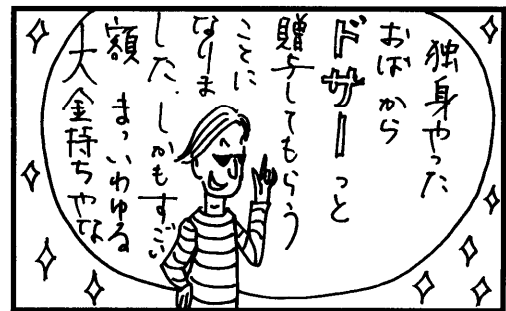 独身やった
おばから
ドサーっと
贈与してもらう
ことに
なりま
した.しかもすごい
額 まっいわゆる
大金持ちやな